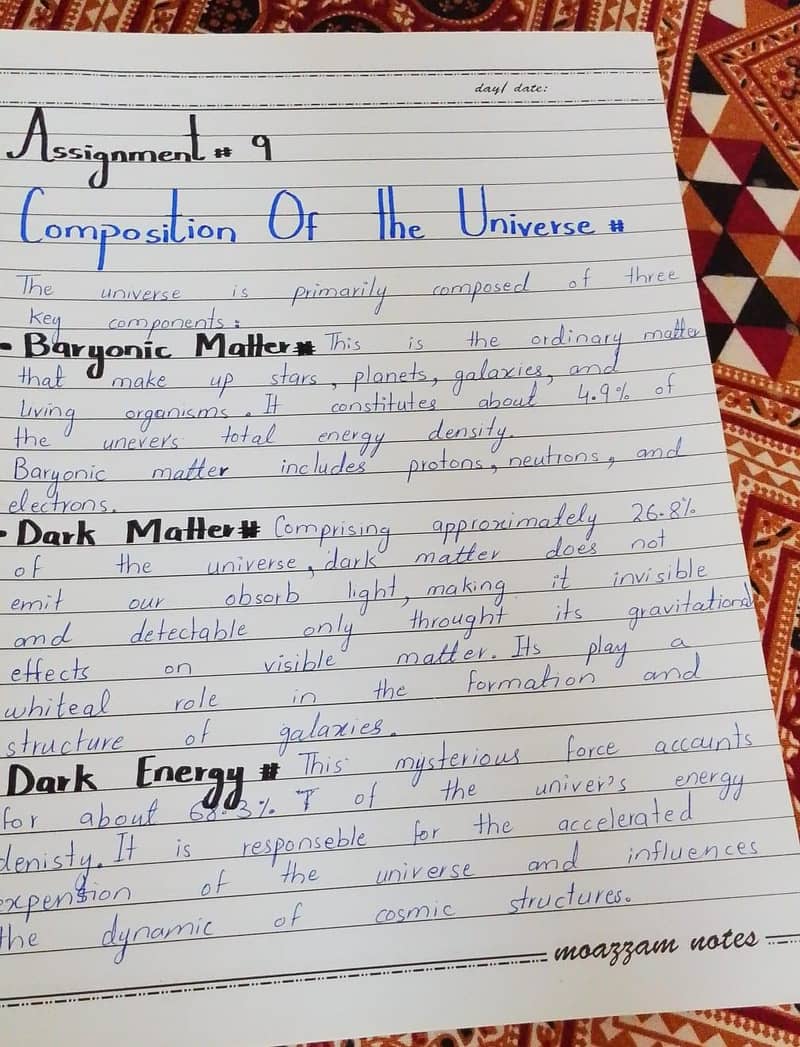 day/ date:
Assignment # 9
Composition Of the Universe #
The universe is primarily composed of three
Key components:
- Baryonic Matter# This is the ordinary matter
that make up stars, planets, galaxies, and
living organisms. It constitutes about 4.9% of
the unevers total energy density.
Baryonic matter includes protons, neutrons, and
electrons.
• Dark Matter# Comprising approximately 26.8%
of the universe, dark matter does not
emit our obsorb light, making it invisible
and detectable only throught its gravitational
effects on visible matter. Its play a
whiteal role in the formation and
structure of galaxies.
Dark Energy # This mysterious force accounts
for about 68.3% of the univer's energy
denisty. It is responseble for the accelerated
expension of the universe and influences
the dynamic of cosmic structures.
moazzam notes